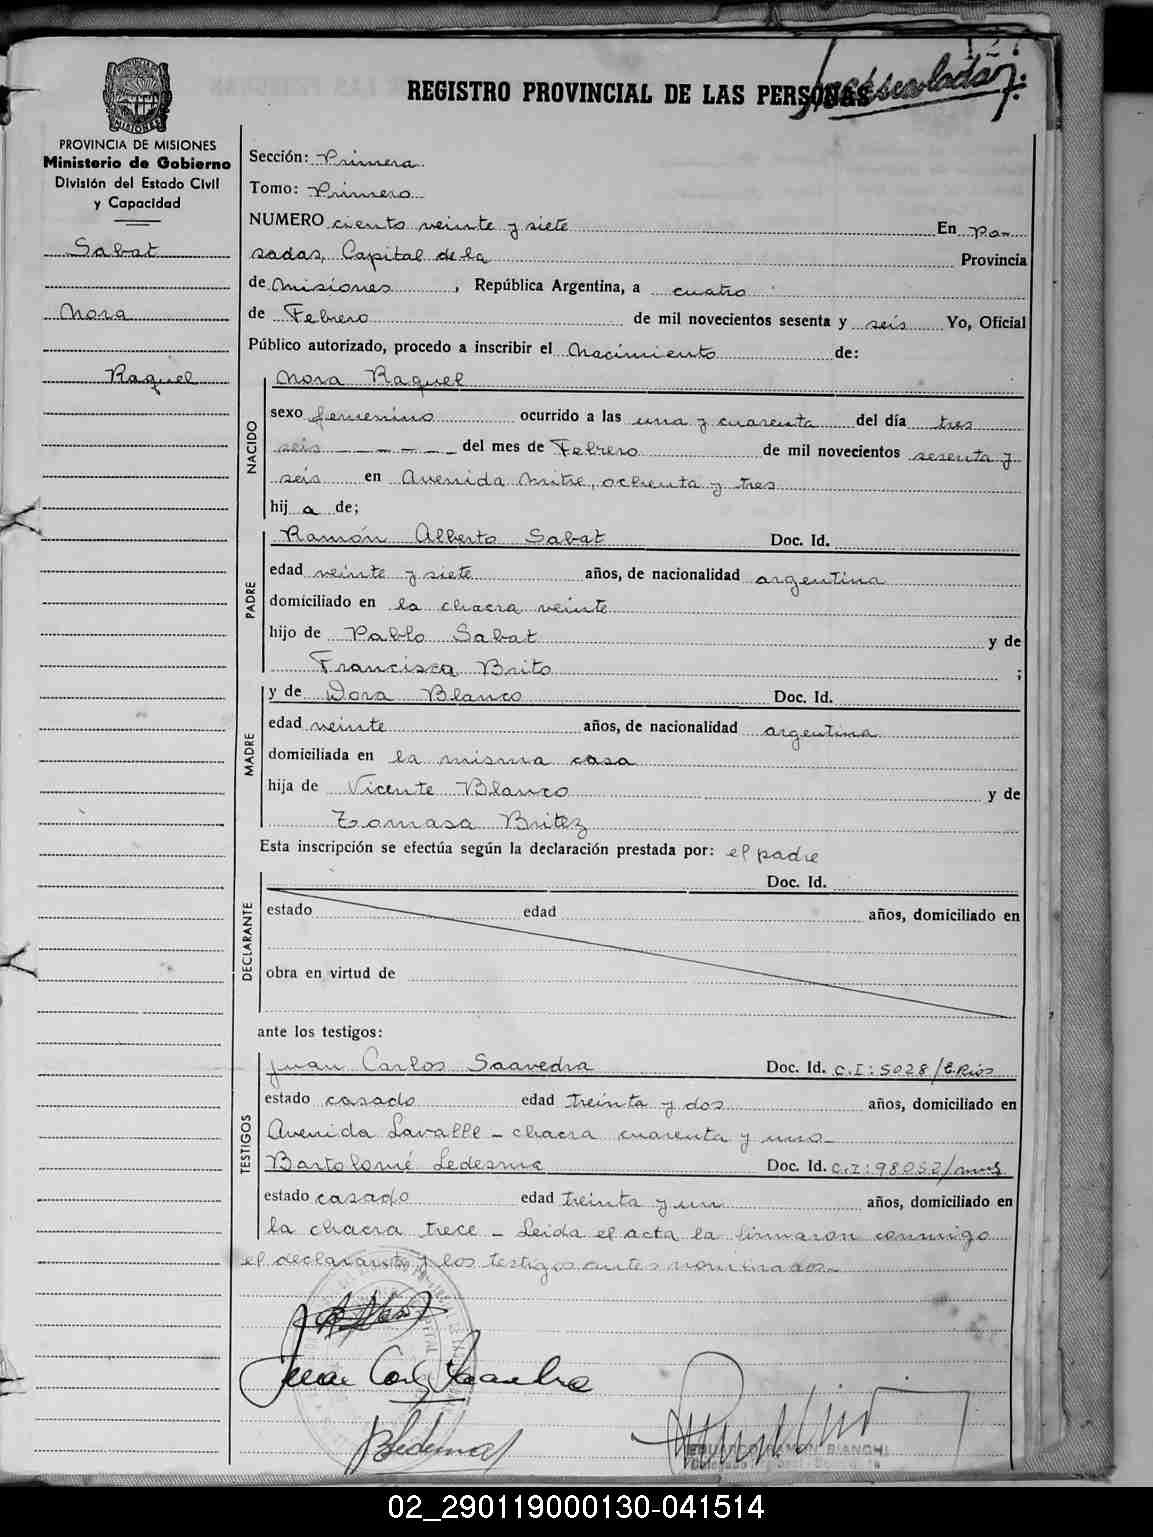 127
Inesescolada
REGISTRO PROVINCIAL DE LAS PERSONAS
PROVINCIA DE MISIONES
Ministerio de Gobierno
División del Estado Civil
y Capacidad
Sabat
Nora
Raquel
Sección: Primera
Tomo: Primero
NUMERO ciento veinte y siete En Po-
sadas, Capital de la Provincia
de Misiones, República Argentina, a cuatro
de Febrero de mil novecientos sesenta y seis Yo, Oficial
Público autorizado, procedo a inscribir el Nacimiento de:
NACIDO
Nora Raquel
sexo femenino ocurrido a las una y cuarenta del día tres
seis del mes de Febrero de mil novecientos sesenta y
seis en Avenida Mitre, ochenta y tres
hij a de;
PADRE
Ramón Alberto Sabat Doc. Id.
edad veinte y siete años, de nacionalidad argentina
domiciliado en la chacra veinte
hijo de Pablo Sabat y de
Francisca Brito ;
MADRE
y de Dora Blanco Doc. Id.
edad veinte años, de nacionalidad argentina
domiciliada en la misma casa
hija de Vicente Blanco y de
Tomasa Britez
Esta inscripción se efectúa según la declaración prestada por: el padre
DECLARANTE
Doc. Id.
estado edad años, domiciliado en
obra en virtud de
ante los testigos:
TESTIGOS
Juan Carlos Saavedra Doc. Id. C.I: 5028/E.Rios
estado casado edad treinta y dos años, domiciliado en
Avenida Lavalle - chacra cuarenta y uno-
Bartolomé Ledesma Doc. Id. C.I: 98052/mnes
estado casado edad treinta y un años, domiciliado en
la chacra trece - Leida el acta la firmaron conmigo
el declarante y los testigos antes nominados-
Juan Carl Saavedra
BLedesma
EDUARDO RAMON BIANCHI
02_290119000130-041514